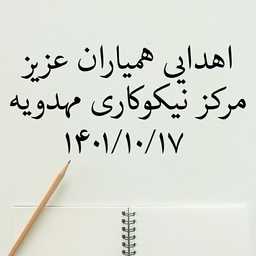 اهدایی همیاران عزیز
مرکز نیکوکاری مهدویه
۱۴۰۱/۱۰/۱۷